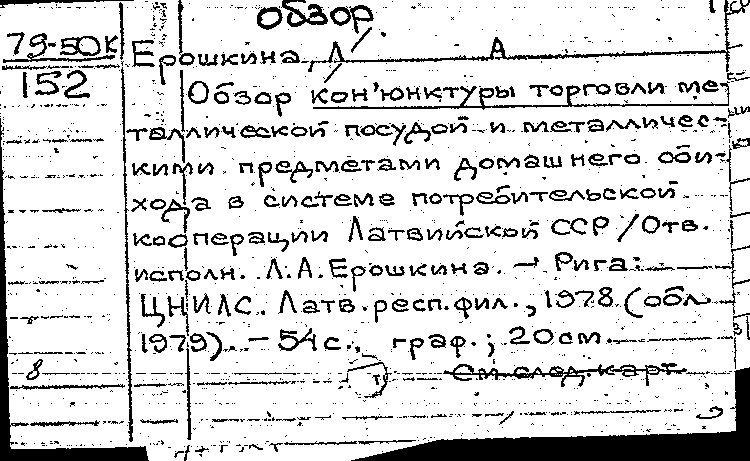 обзор.
79-50к
152
Ерошкина, Л А
Обзор кон'юнктуры торговли ме-
таллической посудой и металличес-
кими предметами домашнего оби-
хода в системе потребительской
кооперации Латвийской ССР / Отв.
исполн. Л.А. Ерошкина. — Рига:
ЦНИЛС. Латв. респ. фил., 1978 (обл.
1979). — 54 с., граф.; 20 см.
8
См. след. карт.